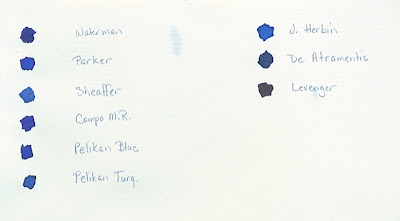 Waterman
Parker
Sheaffer
Campo M.R.
Pelikan Blue
Pelikan Turq.
J. Herbin
De Atramentis
Levenger